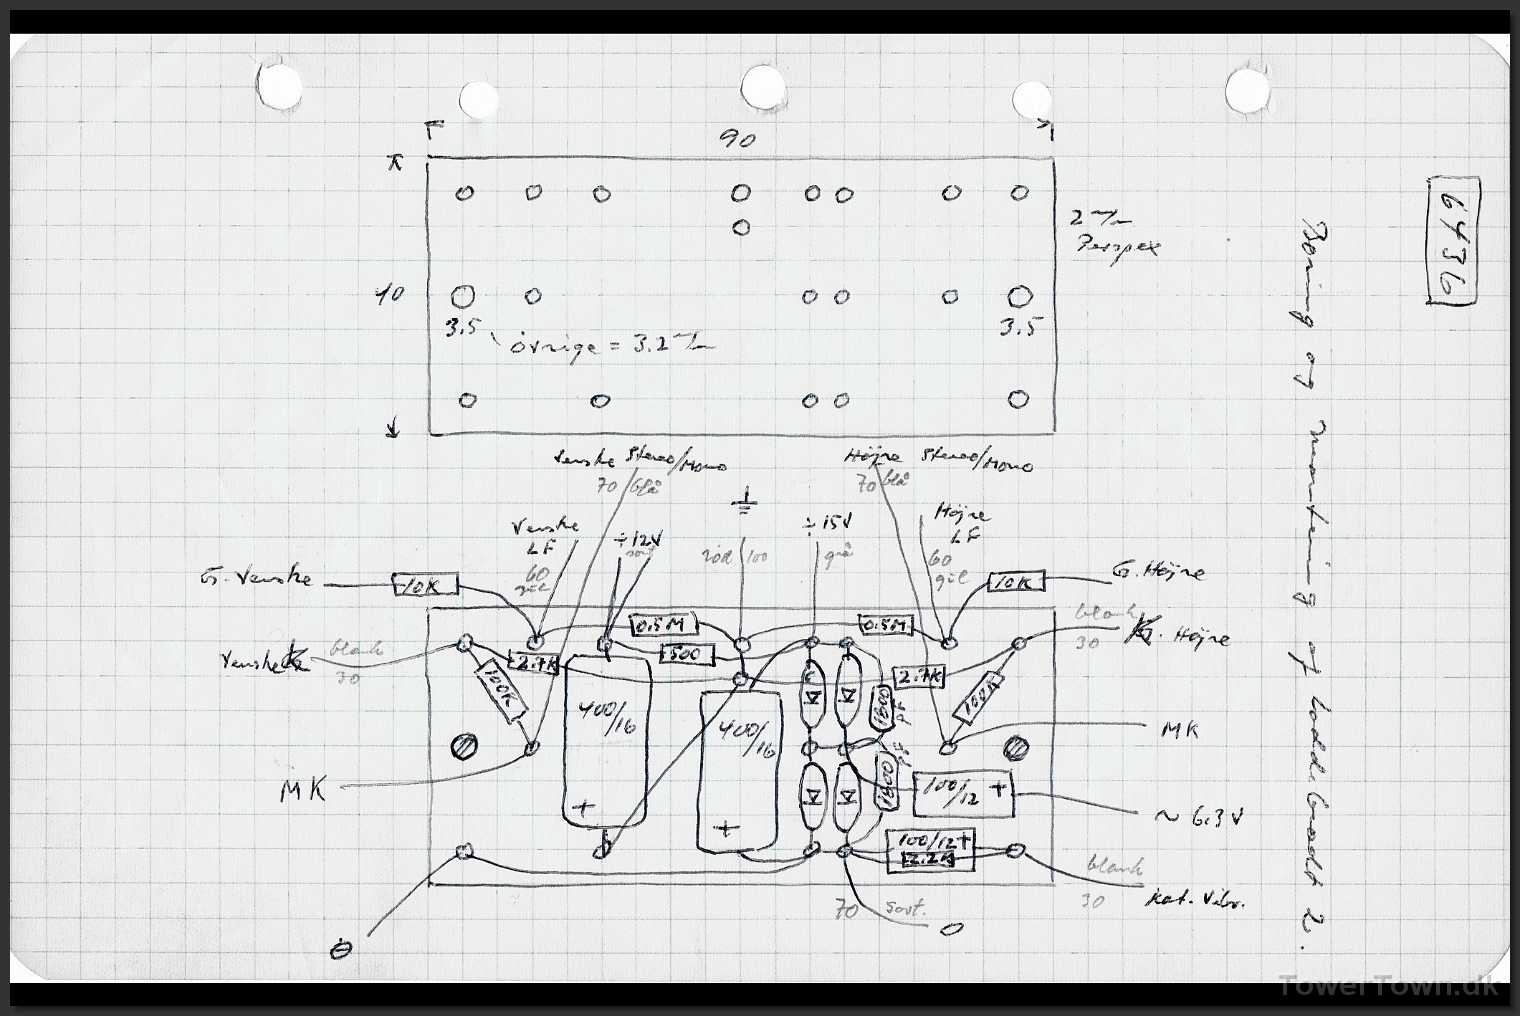 90
2 m/m
Perspex
40
3.5
3.5
övrige = 3.2 m/m
6436
Boring og montering af loddebrædt 2.
Venske Stereo/Mono
70 blå
Højre Stereo/Mono
70 blå
Venske
LF
60
gul
÷12V
sort
rød 100
÷15V
grå
Højre
LF
60
gul
G. Venske
10K
10K
G. Højre
0.5M
0.5M
blank
30
K. Højre
Venske K
blank
30
2.7K
500
2.7K
100K
100K
400/16
+
400/16
+
1800
pF
1800
pF
MK
MK
100/12 +
~ 6.3V
100/12+
2.2K
blank
30
kat. Vibr.
70 sort.
TowerTown.dk